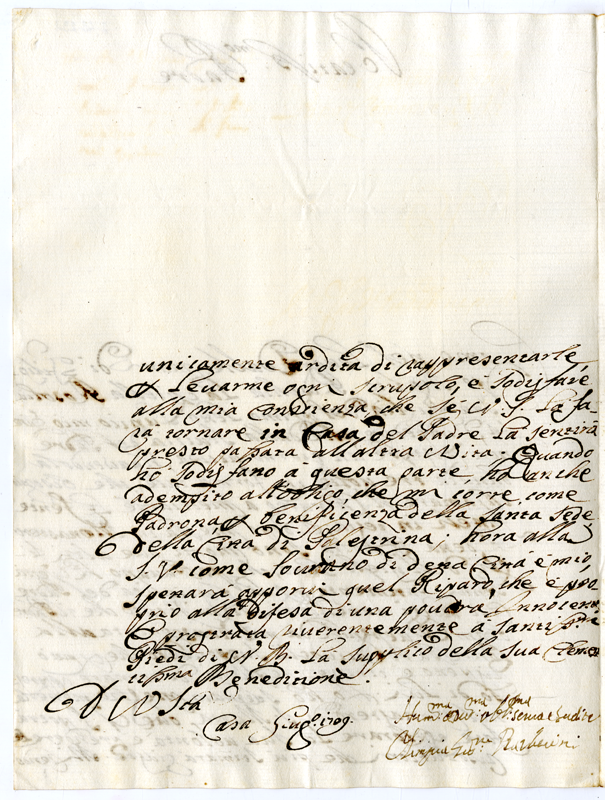 unicamente ardita di rappresentarle,
p levarme ogni scrupolo, e sodisfare
alla mia conscienza che se V. S. La fa-
rà tornare in Casa del Padre La sentirà
presto passata all'altra Vita. Quando
ho sodisfatto à questa parte, ho anche
adempito all'obligo, che mi corre come
Padrona p beneficenza della Santa Sede
della Città di Palestrina; hora alla
S. V. come Sovrano di detta Città è mio
sperarà apporvi quel Riparo, che è pro-
prio alla difesa di una povera Innocente,
E prostrata riverentemente a Santi.mi
Piedi di V. B. La supplico della sua Clemen
tissma Benedittione.
D V Stà
Casa Giug.º 1709.
Hum.ma Dev.ma Obl.ma serva e Suddita
Olimpia Barberini